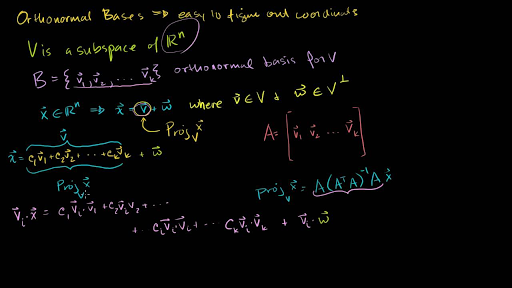 Orthonormal Bases ⇒ easy to figure out coordinates
V is a subspace of ℝⁿ
B = {v⃗₁, v⃗₂, ... v⃗ₖ} orthonormal basis for V
x⃗ ∈ ℝⁿ ⇒ x⃗ = v⃗ + w⃗ where v⃗ ∈ V & w⃗ ∈ V^⊥
Proj_V x⃗
A = [v⃗₁ v⃗₂ ... v⃗ₖ]
v⃗
x⃗ = c₁v⃗₁ + c₂v⃗₂ + ... + cₖv⃗ₖ + w⃗
Proj_V x⃗
Proj_V x⃗ = A(AᵀA)⁻¹A x⃗
v⃗ᵢ · x⃗ = c₁v⃗ᵢ·v⃗₁ + c₂v⃗ᵢv⃗₂ + ...
+ ... cᵢv⃗ᵢ·v⃗ᵢ + ... cₖv⃗ᵢ·v⃗ₖ + v⃗ᵢ · w⃗